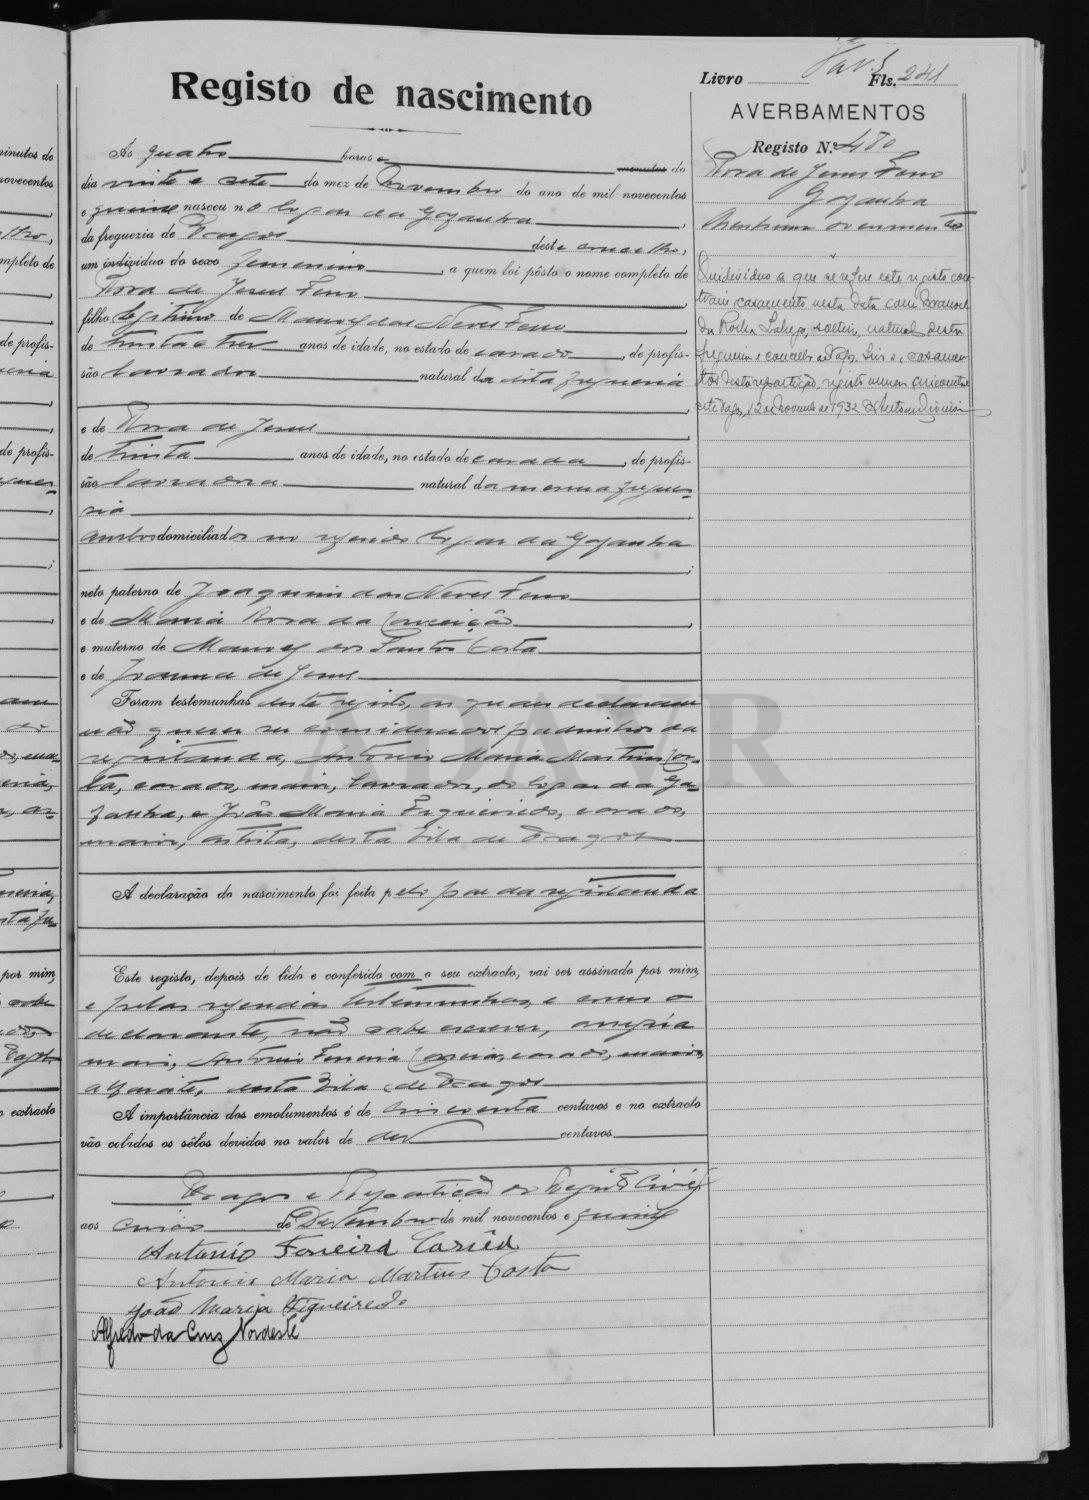 Livro Fls. 241
Registo de nascimento
AVERBAMENTOS
Registo N.º 480
Rosa de Jesus Ferro
Gafanha
Nenhuns documentos
O individuo a que se refere este registo con-
traiu casamento nesta data com Manoel
da Rocha, solteiro, natural desta
freguesia e concelho de Vagos. Livro de casamen-
tos desta repartição, registo numero cincoenta e
sete. Vagos, 12 de Novembro de 1932.
Ás quatro horas e minutos do
dia vinte e sete do mez de Novembro do ano de mil novecentos
e quinze nasceu no logar da Gafanha,
da freguezia de Vagos deste concelho,
um individuo do sexo femenino, a quem foi pôsto o nome completo de
Rosa de Jesus Ferro
filho legitimo de Manoel das Neves Ferro,
de trinta e tres anos de idade, no estado de casado, de profis-
são lavrador natural da dita freguesia
,
e de Rosa de Jesus,
de trinta anos de idade, no estado de casada, de profis-
são lavradora natural da mesma fregue-
sia,
ambos domiciliados no referido logar da Gafanha
;
neto paterno de Joaquim das Neves Ferro
e de Maria Rosa da Conceição,
e materno de Manoel dos Santos Costa
e de Joanna de Jesus
Foram testemunhas deste registo, os quaes declararam
não querer ser considerados padrinhos da
registanda, Antonio Maria Martins Cos-
ta, casado, maior, lavrador, do logar da Ga-
fanha, e João Maria Figueiredo, casado,
maior, artista, desta Vila de Vagos
A declaração do nascimento foi feita pelo pae da registanda
Este registo, depois de lido e conferido com o seu extracto, vai ser assinado por mim,
e pelas referidas testemunhas, e como o
declarante, não sabe escrever, assigna
mais, Antonio Ferreira, casado, maior,
alfaiate, desta Vila de Vagos
A importância dos emolumentos é de cincoenta centavos e no extracto
vão colados os sêlos devidos no valor de dez centavos
Vagos e Repartição do Registo Civil
aos cinco de Dezembro de mil novecentos e quinze
Antonio Ferreira
Antonio Maria Martins Costa
João Maria Figueiredo
Alfredo da Cruz Nordeste
ADAVR